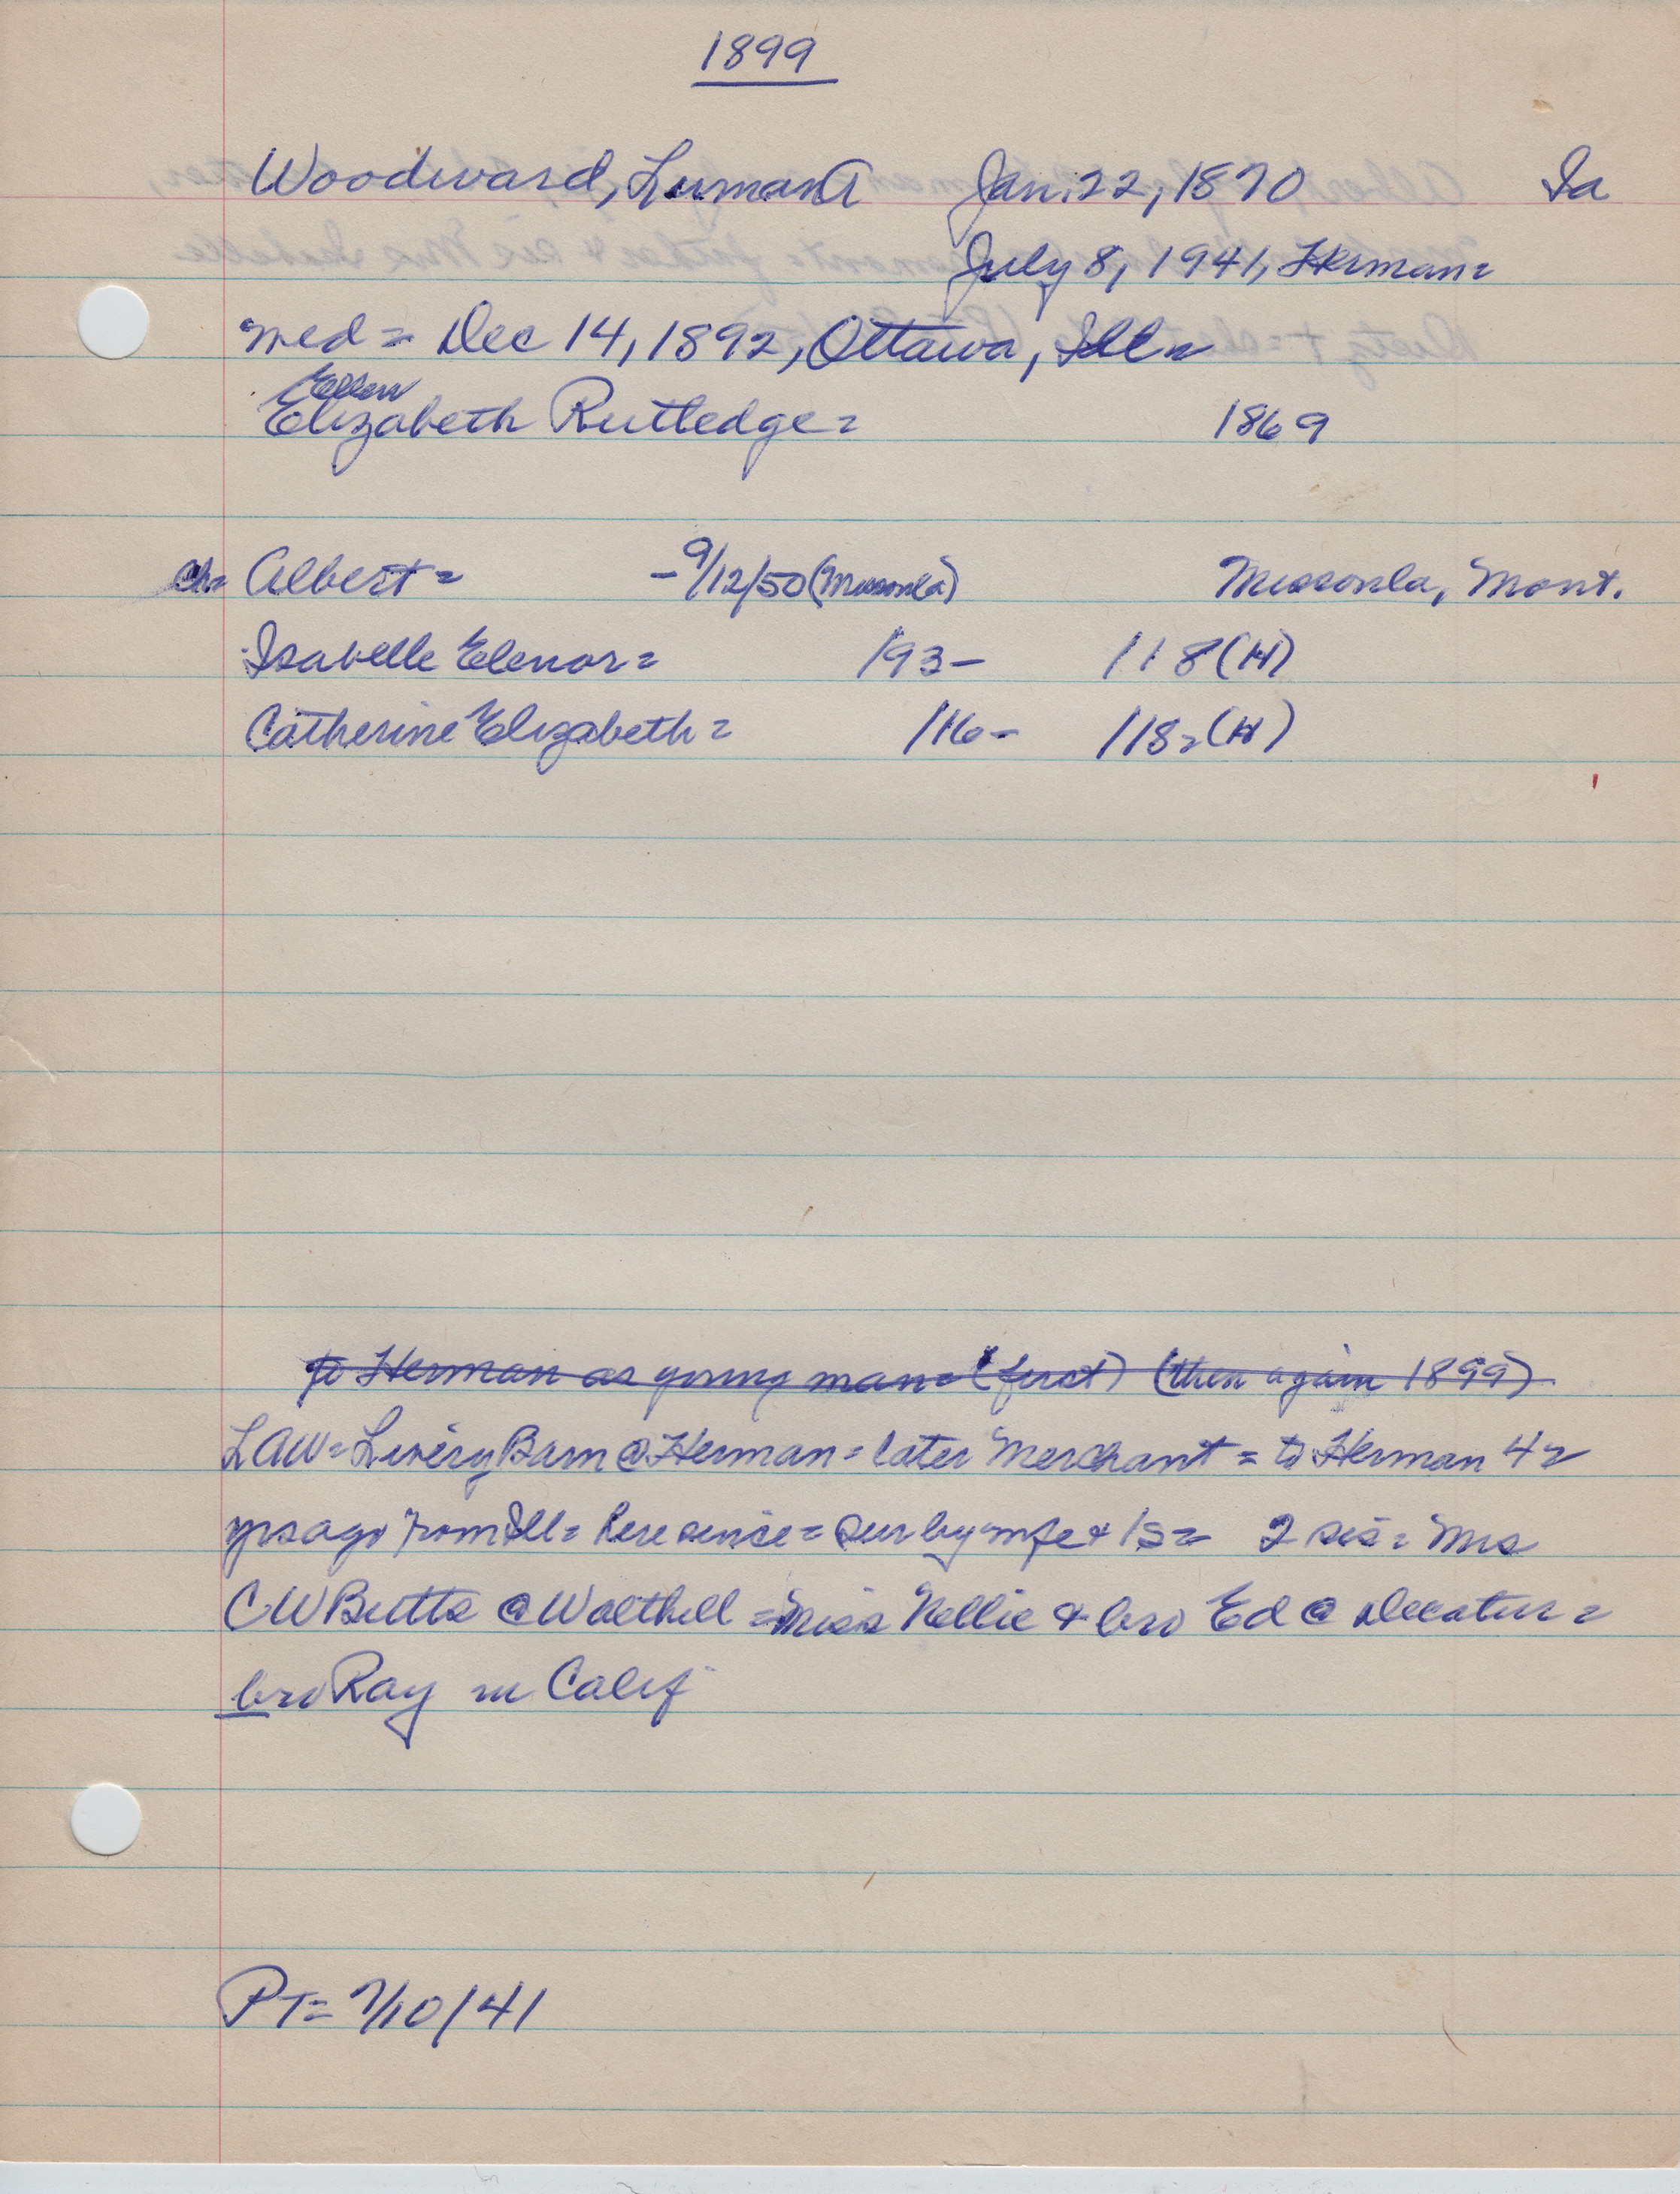 1899
Woodward, Luman A Jan. 22, 1870 Ia
July 8, 1941, Herman=
med = Dec 14, 1892, Ottawa, Ill=
Ellen
Elizabeth Rutledge= 1869
ch= Albert= -9/12/50 (Missoula) Missoula, Mont.
Isabelle Elenor= 193- 118(H)
Catherine Elizabeth= 116- 118=(H)
to Herman as young man= (first) (then again 1899)
LAW= Livery Barn @ Herman= later Merchant = to Herman 42
yrs ago from Ill= here since= Sur by wife & 1s= 2 sis= Mrs
CW Butts @ Walthill = Miss Nellie & bro Ed @ Decatur=
bro Ray in Calif
PT= 7/10/41